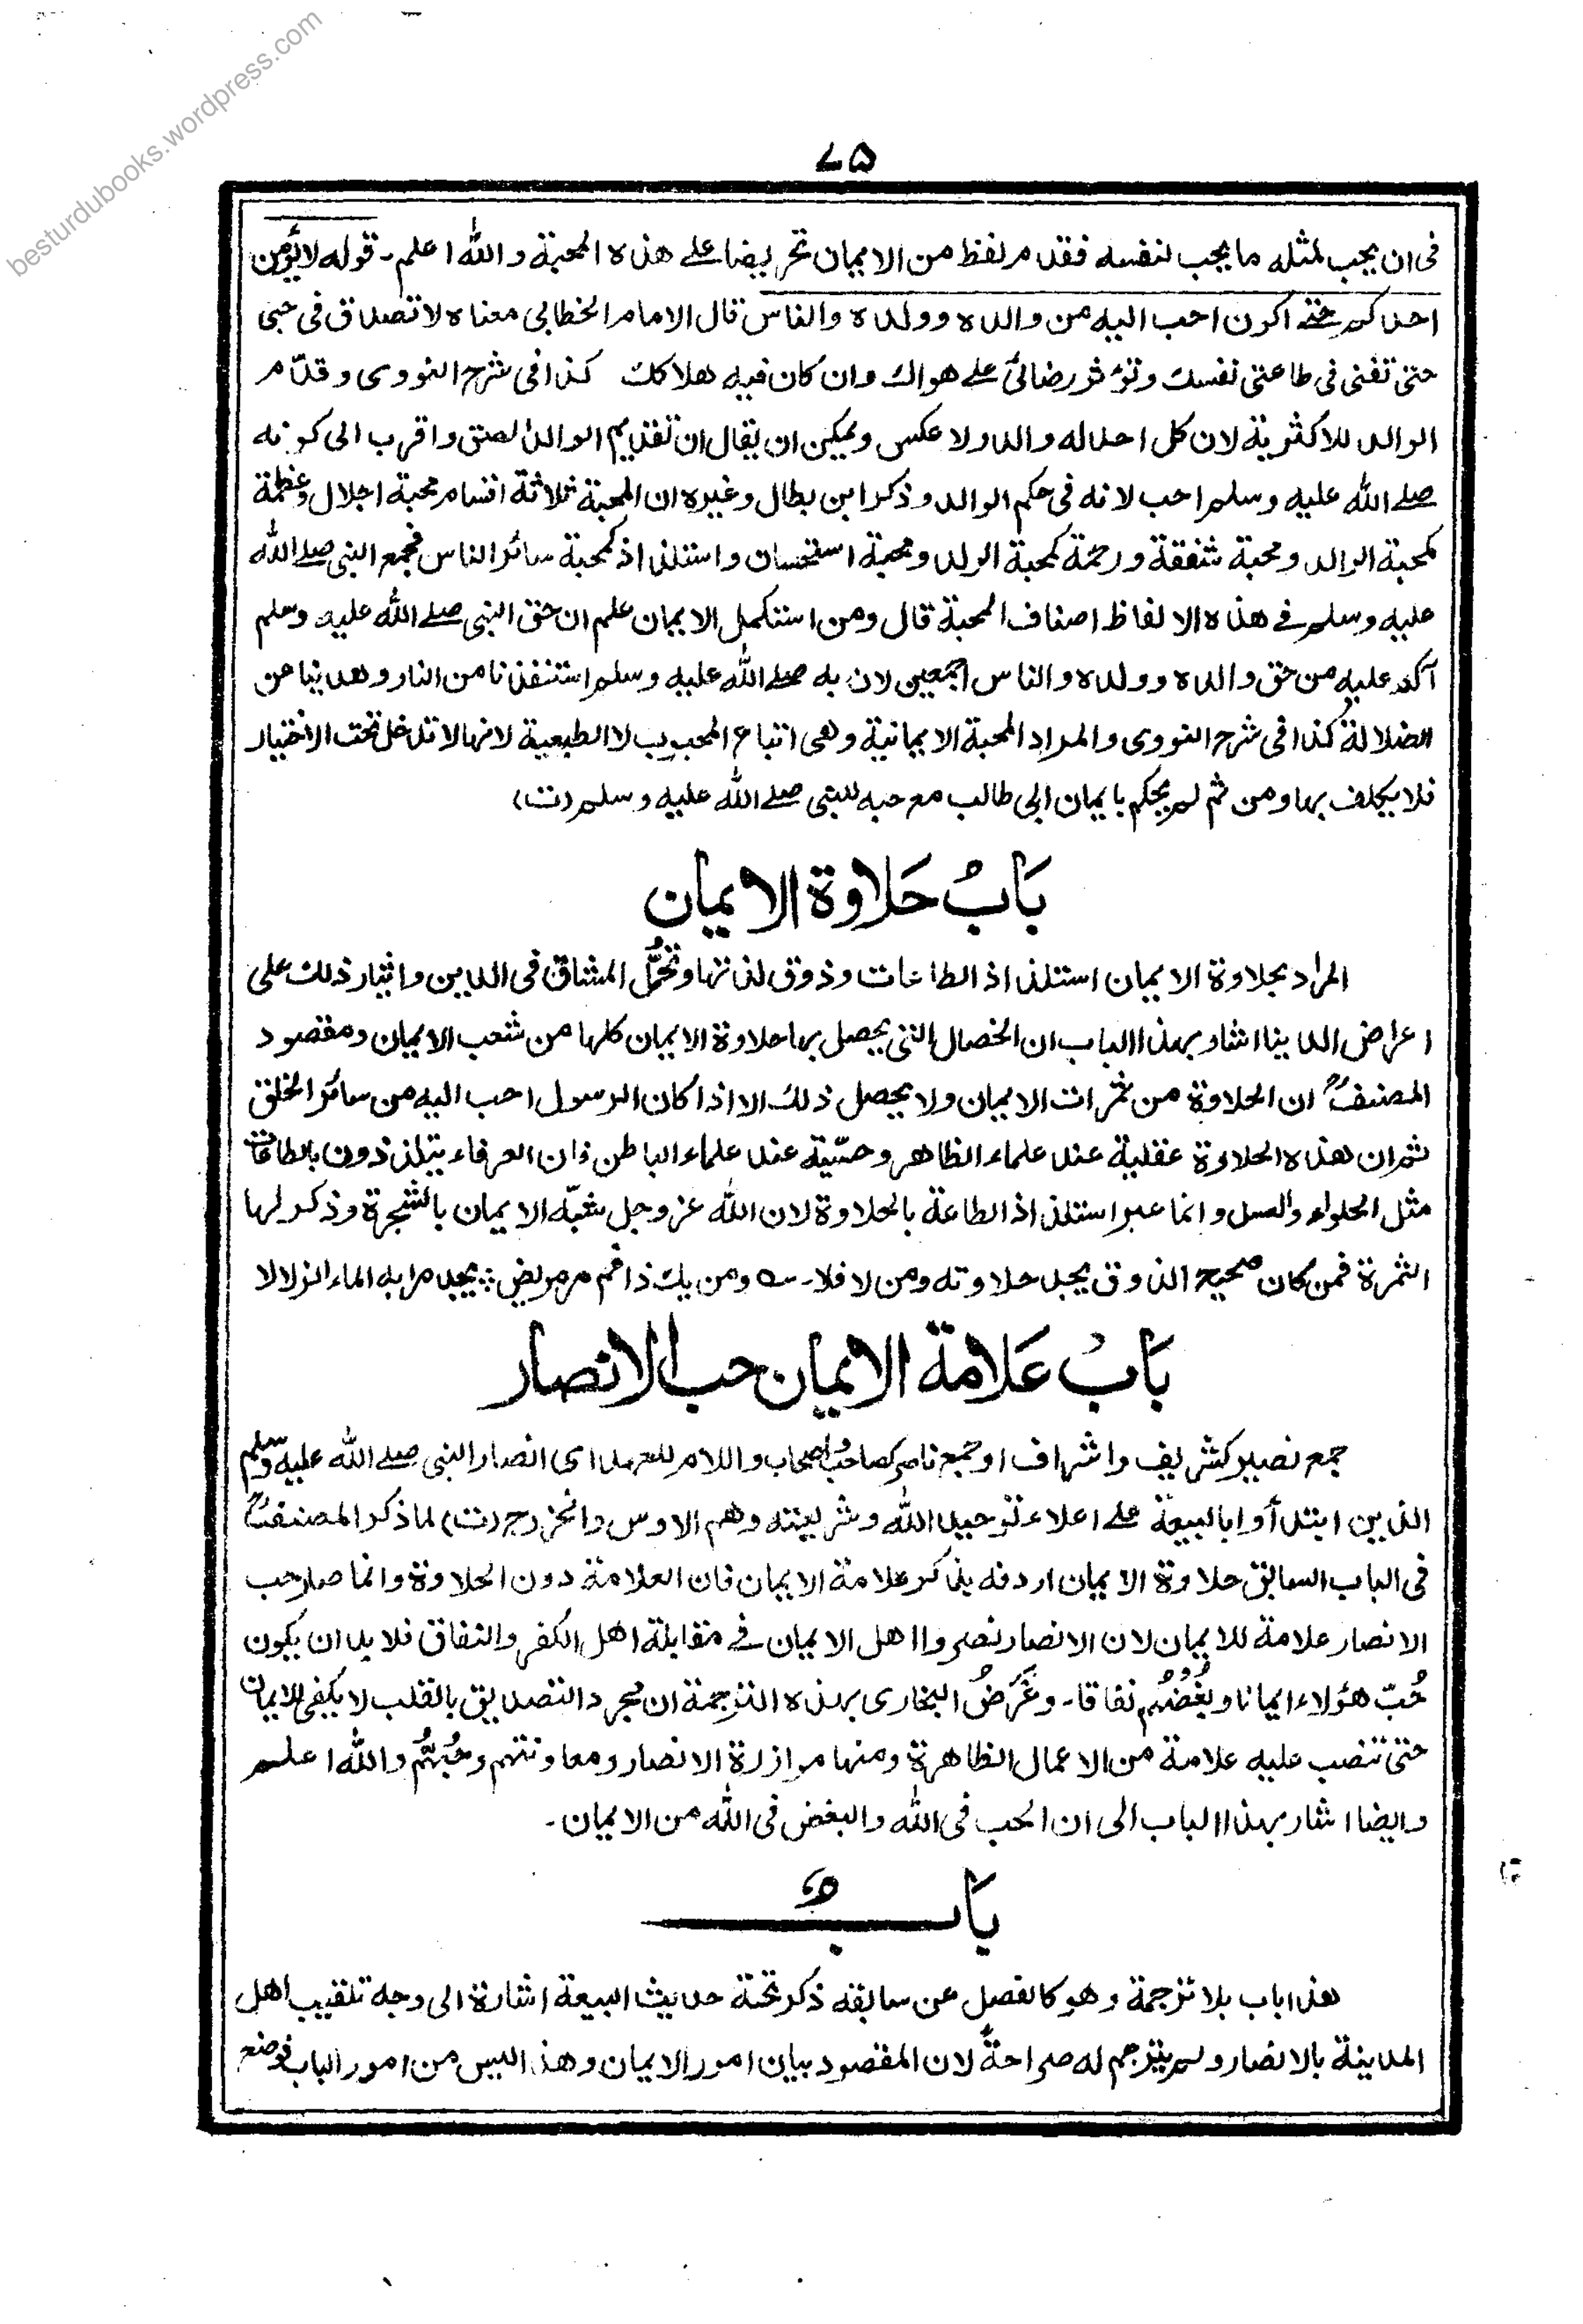 besturdubooks.wordpress.com
۷۵
فى ان يحب لمثله ما يحب لنفسه فقدم لفظ من الايمان تحريضا على هذه المحبة والله اعلم۔ قوله لا يؤمن
احدكم حتى اكون احب اليه من والده وولده والناس قال الامام الخطابى معناه لا تصدق فى حبى
حتى تفنى فى طاعتى نفسك وتؤثر رضائى على هواك وان كان فيه هلاكك كذا فى شرح النووى وقدّم
الوالد للاكثرية لان كل احد له والد ولا عكس ويمكن ان يقال ان تقديم الوالد الصق واقرب الى كونه
صلى الله عليه وسلم احب لانه فى حكم الوالد وذكر ابن بطال وغيره ان المحبة ثلاثة اقسام محبة اجلال وعظمة
كمحبة الوالد ومحبة شفقة ورحمة كمحبة الولد ومحبة استحسان واستلذاذ كمحبة سائر الناس فجمع النبى صلى الله
عليه وسلم فى هذه الالفاظ اصناف المحبة قال ومن استكمل الايمان علم ان حق النبى صلى الله عليه وسلم
آكد عليه من حق والده وولده والناس اجمعين لان به صلى الله عليه وسلم استنقذنا من النار وهدينا من
الضلالة كذا فى شرح النووى والمراد المحبة الايمانية وهى اتباع المحبوب لا الطبعية لانها لا تدخل تحت الاختيار
فلا يكلف بها ومن ثم لم يحكم بايمان ابى طالب مع حبه للنبى صلى الله عليه وسلم (ت)
بَابُ حَلاوة الايمان
المراد بحلاوة الايمان استلذاذ الطاعات وذوق لذاتها وتحمُّل المشاق فى الدين وايثار ذلك على
اعراض الدنيا اشار بهذا الباب ان الخصال التى يحصل بها حلاوة الايمان كلها من شعب الايمان ومقصود
المصنفؒ ان الحلاوة من ثمرات الايمان ولا يحصل ذلك الا اذا كان الرسول احب اليه من سائر الخلق
ثم ان هذه الحلاوة عقلية عند علماء الظاهر وحسّية عند علماء الباطن فان العرفاء يتلذذون بالطاعات
مثل الحلواء والعسل وانما عبر استلذاذ الطاعة بالحلاوة لان الله عز وجل شبّه الايمان بالشجرة وذكر لها
الثمرة فمن كان صحيح الذوق يجد حلاوته ومن لا فلا۔ ؎ ومن يك ذا فم مر مريض ؞ يجد مرا به الماء الزلالا
بَابُ عَلامة الايمان حب الانصار
جمع نصير كشريف واشراف او جمع ناصر كصاحب واصحاب واللام للعهد اى انصار النبى صلى الله عليه وسلم
الذين ابتدأوا بالبيعة على اعلاء توحيد الله وشريعته وهم الاوس والخزرج (ت) لما ذكر المصنفؒ
فى الباب السابق حلاوة الايمان اردفه بذكر علامة الايمان فان العلامة دون الحلاوة وانما صار حب
الانصار علامة للايمان لان الانصار نصروا اهل الايمان فى مقابلة اهل الكفر والنفاق فلا بد ان يكون
حُبّ هؤلاء ايمانا وبُغْضُهُم نفاقا۔ وغَرَضُ البخارى بهذه الترجمة ان مجرد التصديق بالقلب لا يكفى للايمان
حتى تنصب عليه علامة من الاعمال الظاهرة ومنها موازرة الانصار ومعاونتهم وحُبُّهُم والله اعلم
وايضا اشار بهذا الباب الى ان الحب فى الله والبغض فى الله من الايمان۔
بَابٌ
هذا باب بلا ترجمة وهو كالفصل عن سابقه ذكر تحته حديث البيعة اشارة الى وجه تلقيب اهل
المدينة بالانصار ولم يترجم له صراحةً لان المقصود بيان امور الايمان وهذا ليس من امور الباب فوضع